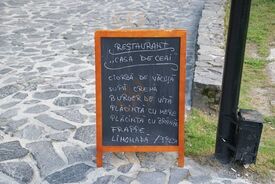 RESTAURANT
„CASA DE CEAI"
CIORBĂ DE VĂCUȚĂ
SUPĂ CREMĂ
BURGER DE VITĂ
PLĂCINTĂ CU MERE
PLĂCINTĂ CU BRÂNZĂ
FRAPPE
LIMONADĂ